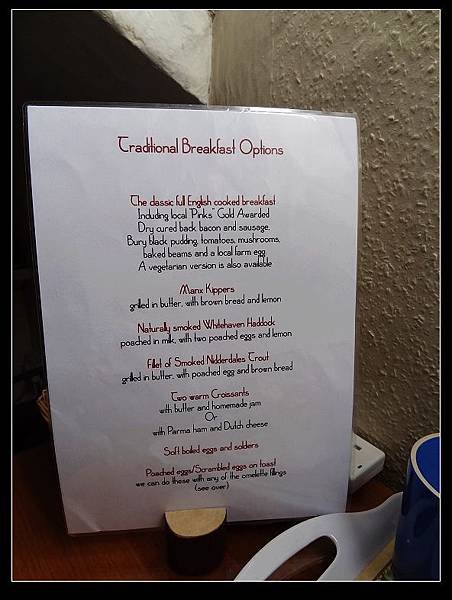 Traditional Breakfast Options
The classic full English cooked breakfast
Including local "Pinks" Gold Awarded
Dry cured back bacon and sausage,
Bury black pudding, tomatoes, mushrooms,
baked beams and a local farm egg
A vegetarian version is also available
Manx Kippers
grilled in butter, with brown bread and lemon
Naturally smoked Whitehaven Haddock
poached in milk, with two poached eggs and lemon
Fillet of Smoked Nidderdales Trout
grilled in butter, with poached egg and brown bread
Two warm Croissants
with butter and homemade jam
Or
with Parma ham and Dutch cheese
Soft boiled eggs and solders
Poached eggs/Scrambled eggs on toast
we can do these with any of the omelette fillings
(see over)